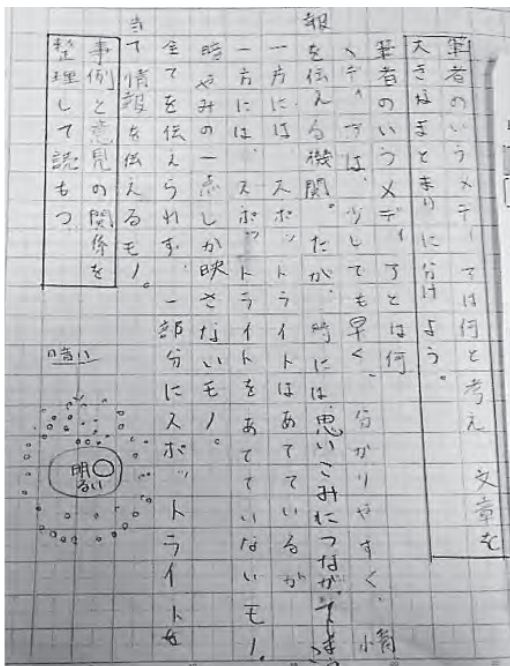 筆者のいうメディアは何と考え 文章を
大きなまとまりに分けよう。
筆者のいうメディアとは何
メディアは、少しでも早く、分かりやすく、情
報を伝える機関。だが、時には思いこみにつながってしまう
一方には スポットライトはあてているが
一方には、スポットライトをあてていないモノ。
時やみの一点しか映さないモノ。
全てを伝えられず、一部分にスポットライトを
当て情報を伝えるモノ。
事例と意見の関係を
整理して読もう
暗い
明るい